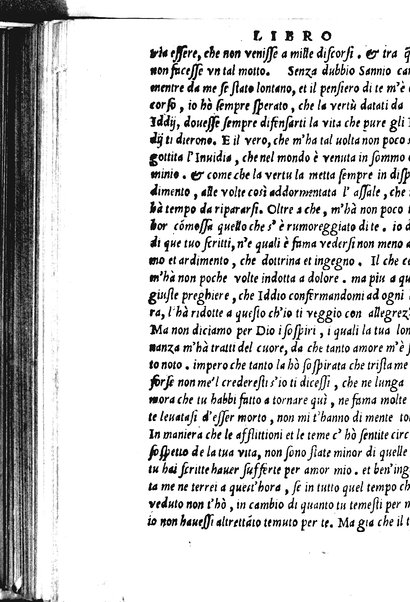 LIBRO
via essere, che non venisse a mille discorsi. & tra q̃
non facesse vn tal motto. Senza dubbio Sannio car
mentre da me se stato lontano, et il pensiero di te m'è
corso, io hò sempre sperato, che la vertù datati da
Iddij, douesse sempre difensarti la vita che pure gli I
dij ti dierono. E il vero, che m'ha tal uolta non poco s
gottita l'Inuidia, che nel mondo è venuta in sommo d
minio. & come che la vertu la metta sempre in disp
dimento, alle volte così addormentata l'assale, che
hà tempo da ripararsi. Oltre a che, m'hà non poco t
bor cōmossa quello che s'è rumoreggiato di te. io d
di que tuoi scritti, n'e quali è fama vedersi non meno a
mo et ardimento, che dottrina et ingegno. Il che ce
m'hà non poche volte indotta a dolore. ma piu a qu
giuste preghiere, che Iddio confirmandomi ad ogni
ra, l'hà ridotte a questo ch'io ti veggio con allegrez?
Ma non diciamo per Dio i sospiri, i quali la tua lon
nanza m'hà tratti del cuore, da che tanto amore m'è s
to noto. impero che tanto la hò sospirata che trista me
forse non me'l crederesti s'io ti dicessi, che ne lunga
mora che tu habbi fatto a tornare quì, ne fama molte
te leuatasi d'esser morto, non mi t'hanno di mente to
In maniera che le afflittioni et le teme c'hò sentite circ
sospetto de la tua vita, non sono state minor di quelle
tu hai scritte hauer sufferte per amor mio. et ben'ing
ta me ne terrei a quest'hora, se in tutto quel tempo ch
veduto non t'hò, in cambio di quanto tu temesti per m
io non hauessi altrettāto temuto per te. Ma gia che il t